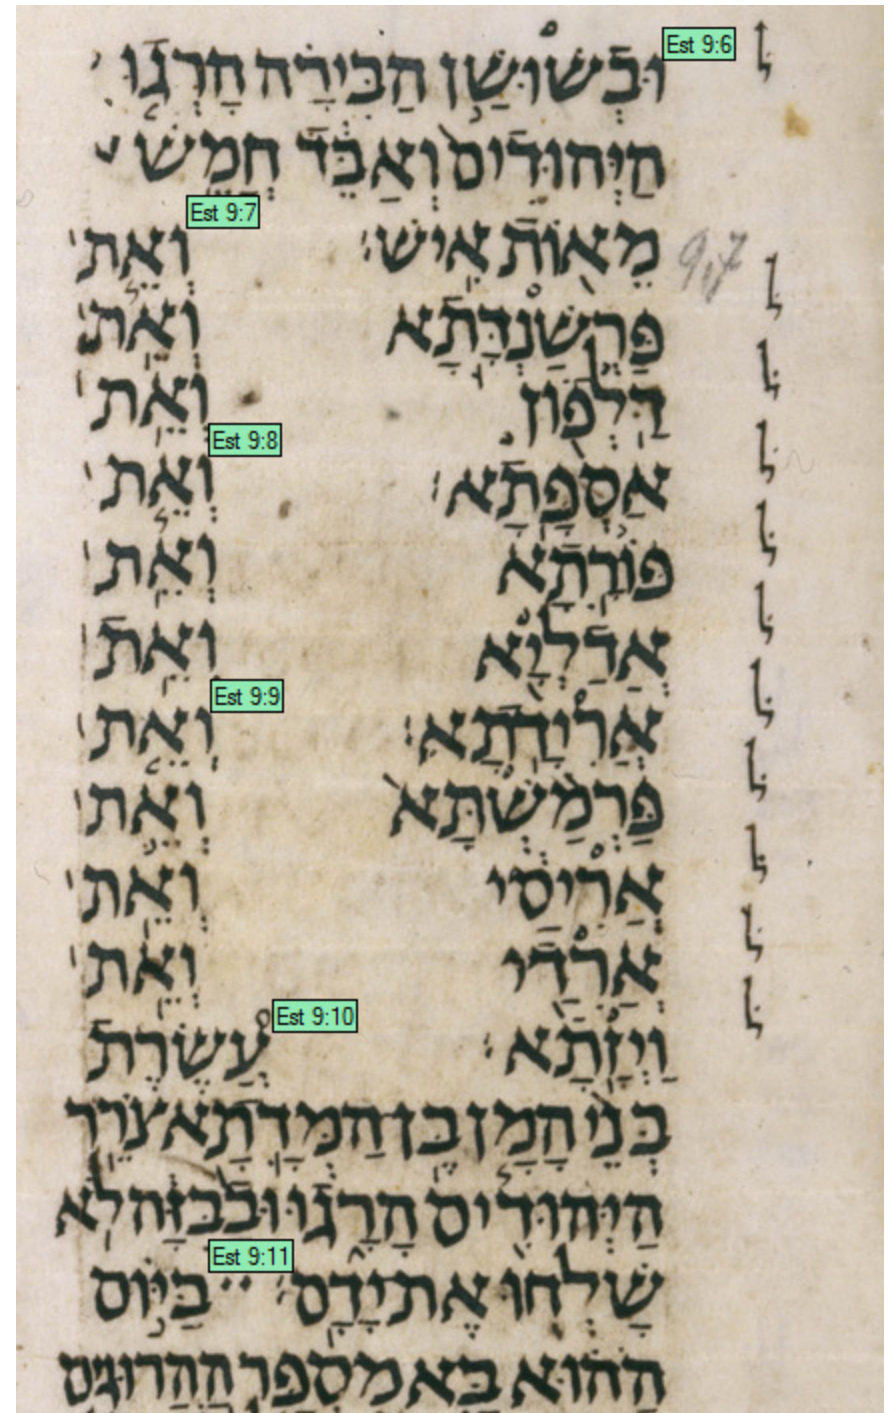 Est 9:6
וּבְשׁוּשַׁן הַבִּירָה הָרְגוּ
הַיְּהוּדִים וְאַבֵּד חֲמֵשׁ
Est 9:7
מֵאוֹת אִישׁ׃ וְאֵת
9,7
פַּרְשַׁנְדָּתָא וְאֵת
דַּלְפוֹן וְאֵת
Est 9:8
אַסְפָּתָא׃ וְאֵת
פּוֹרָתָא וְאֵת
אֲדַלְיָא וְאֵת
Est 9:9
אֲרִידָתָא׃ וְאֵת
פַּרְמַשְׁתָּא וְאֵת
אֲרִיסַי וְאֵת
אֲרִדַי וְאֵת
Est 9:10
וַיְזָתָא׃ עֲשֶׂרֶת
בְּנֵי הָמָן בֶּן הַמְּדָתָא צֹרֵר
הַיְּהוּדִים הָרָגוּ וּבַבִּזָּה לֹא
Est 9:11
שָׁלְחוּ אֶת יָדָם׃ בַּיּוֹם
הַהוּא בָּא מִסְפַּר הַהֲרוּגִים